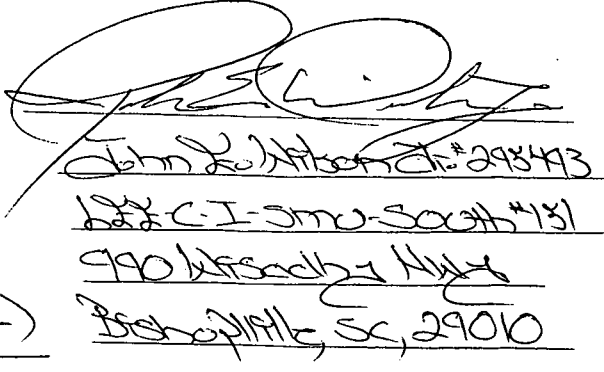 John E. Wilson Jr. #295493
LEE-C-I-SMU-South #131
990 Wisacky Hwy
Bishopville, SC, 29010
-)